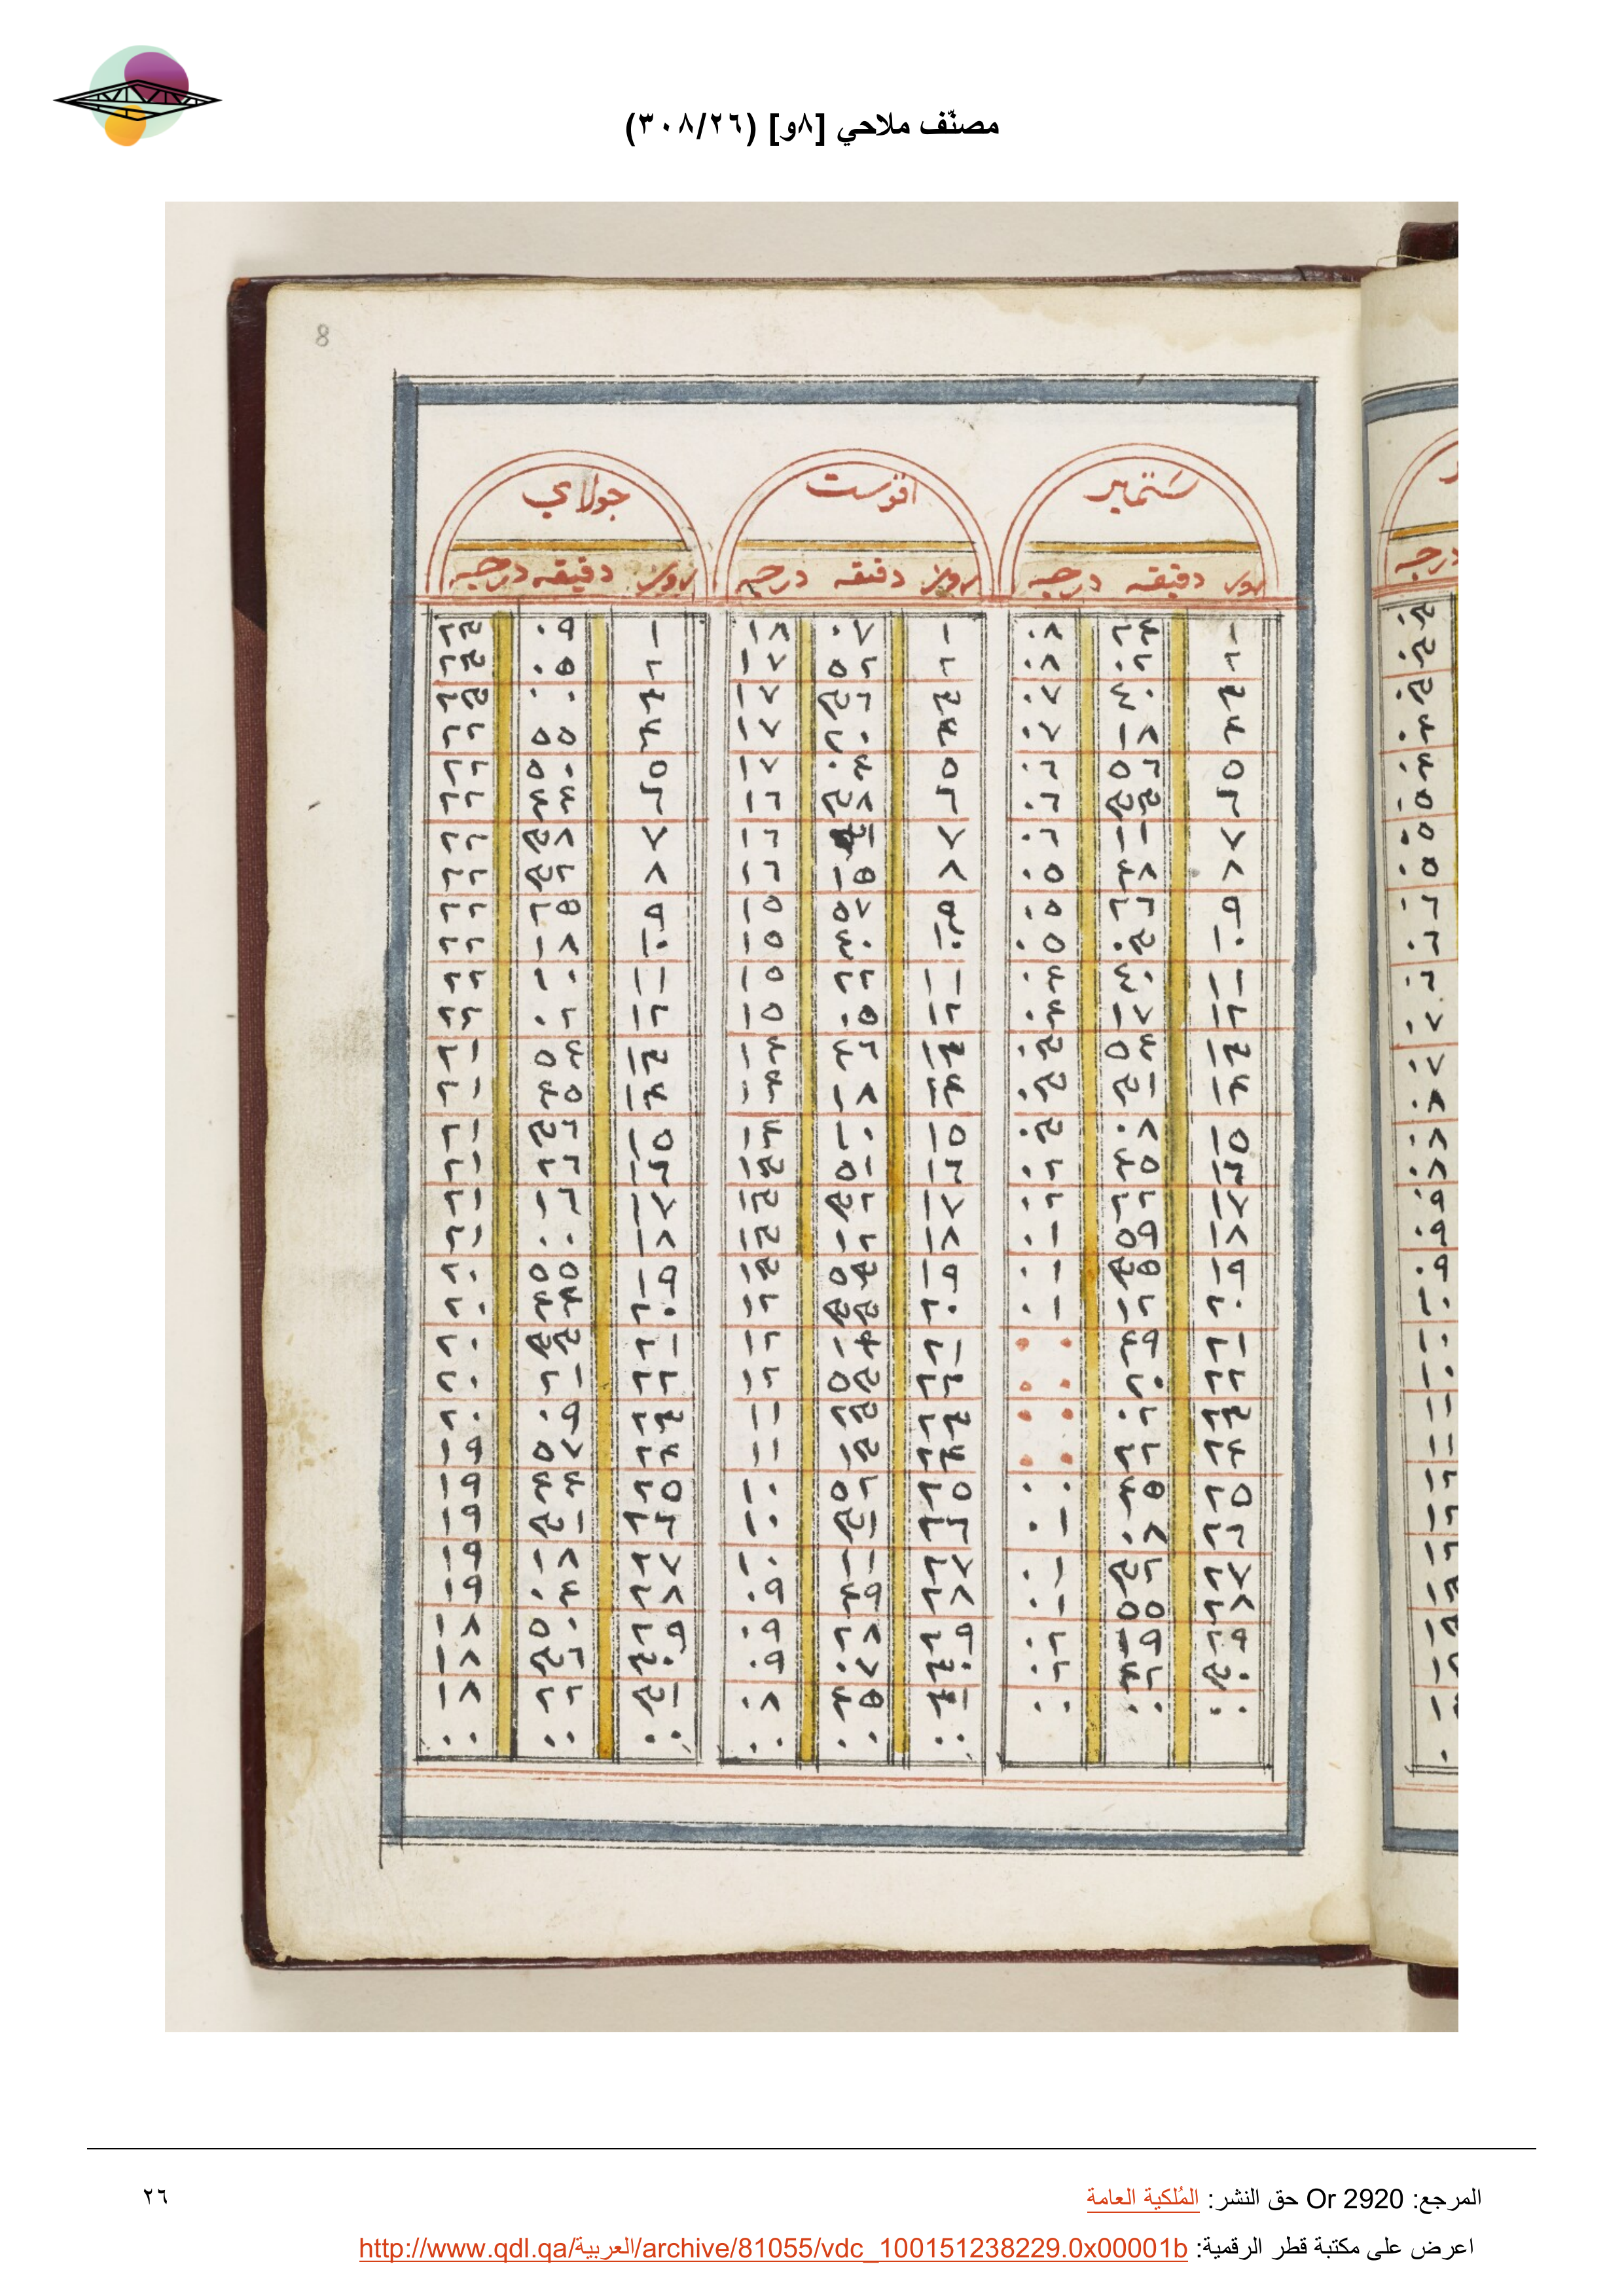 مصنّف ملاحي [٨و] (٣٠٨/٢٦)
8
ستمبر اقوست جولاي
روز دقيقه درجه روز دقيقه درجه روز دقيقه درجه
١ ٢٤ ٠٨ ١ ٠٧ ١٨ ١ ٠٩ ٢٣
٢ ٠٢ ٠٨ ٢ ٥٢ ١٧ ٢ ٠٥ ٢٣
٣ ٤٠ ٠٧ ٣ ٣٦ ١٧ ٣ ٠٠ ٢٣
٤ ١٨ ٠٧ ٤ ٢٠ ١٧ ٤ ٥٥ ٢٢
٥ ٥٦ ٠٦ ٥ ٠٤ ١٧ ٥ ٥٠ ٢٢
٦ ٣٣ ٠٦ ٦ ٣٨ ١٦ ٦ ٤٤ ٢٢
٧ ١١ ٠٦ ٧ ١٦ ٧ ٣٨ ٢٢
٨ ٤٨ ٠٥ ٨ ١٥ ١٦ ٨ ٣٢ ٢٢
٩ ٢٦ ٠٥ ٩ ٥٧ ١٥ ٩ ٢٥ ٢٢
١٠ ٠٣ ٠٥ ١٠ ٤٠ ١٥ ١٠ ١٨ ٢٢
١١ ٤٠ ٠٤ ١١ ٢٢ ١٥ ١١ ١٠ ٢٢
١٢ ١٧ ٠٤ ١٢ ٠٥ ١٥ ١٢ ٠٢ ٢٢
١٣ ٥٤ ٠٣ ١٣ ٤٦ ١٤ ١٣ ٥٤ ٢١
١٤ ٣١ ٠٣ ١٤ ١٨ ١٤ ١٤ ٤٥ ٢١
١٥ ٠٨ ٠٣ ١٥ ١٠ ١٤ ١٥ ٣٦ ٢١
١٦ ٤٥ ٠٢ ١٦ ٥١ ١٣ ١٦ ٢٦ ٢١
١٧ ٢٢ ٠٢ ١٧ ٣٢ ١٣ ١٧ ١٦ ٢١
١٨ ٥٩ ٠١ ١٨ ١٢ ١٣ ١٨ ٠٠ ٢١
١٩ ٣٥ ٠١ ١٩ ٥٣ ١٣ ١٩ ٥٥ ٢٠
٢٠ ١٢ ٠١ ٢٠ ٣٣ ١٢ ٢٠ ٤٤ ٢٠
٢١ ٤٩ ٠٠ ٢١ ١٤ ١٢ ٢١ ٣٣ ٢٠
٢٢ ٢٠ ٠٠ ٢٢ ٥٣ ١٢ ٢٢ ٢١ ٢٠
٢٣ ٠٢ ٠٠ ٢٣ ٢٣ ١١ ٢٣ ٠٩ ٢٠
٢٤ ٢٢ ٠٠ ٢٤ ١٣ ١١ ٢٤ ٥٧ ١٩
٢٥ ٤٥ ٠٠ ٢٥ ٥٢ ١٠ ٢٥ ٤٤ ١٩
٢٦ ٠٨ ٠١ ٢٦ ٣١ ١٠ ٢٦ ٣١ ١٩
٢٧ ٣٢ ٠١ ٢٧ ١١ ١٠ ٢٧ ١٨ ١٩
٢٨ ٥٥ ٠١ ٢٨ ٤٩ ٠٩ ٢٨ ٠٤ ١٩
٢٩ ١٩ ٠٢ ٢٩ ٢٨ ٠٩ ٢٩ ٥٠ ١٨
٣٠ ٤٢ ٠٢ ٣٠ ٠٧ ٠٩ ٣٠ ٣٦ ١٨
٠٠ ٠٠ ٠٠ ٣١ ٤٥ ٠٨ ٣١ ٢٢ ١٨
٠٠ ٠٠ ٠٠ ٠٠ ٠٠ ٠٠
المرجع: Or 2920 حق النشر: المُلكية العامة
٢٦
اعرض على مكتبة قطر الرقمية: http://www.qdl.qa/العربية/archive/81055/vdc_100151238229.0x00001b